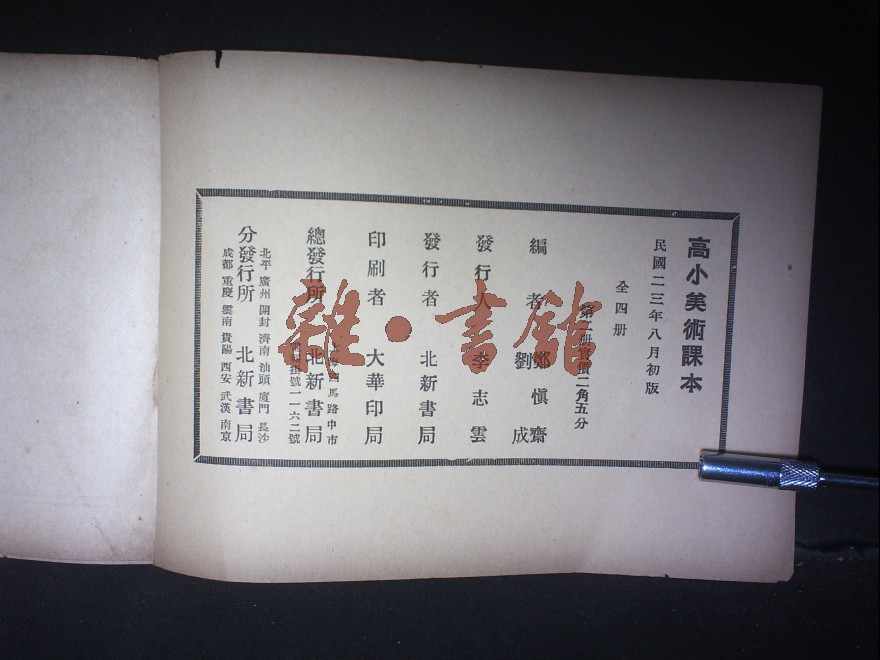 高小美術課本
民國二三年八月初版
全四册
第二册實價二角五分
編者 鄭慎齋
劉成
發行人 李志雲
發行者 北新書局
印刷者 大華印局
馬路中市
總發行所 北新書局
號一一六二號
北平 廣州 開封 濟南 汕頭 廈門 長沙
分發行所 北新書局
成都 重慶 雲南 貴陽 西安 武漢 南京
雜·書館